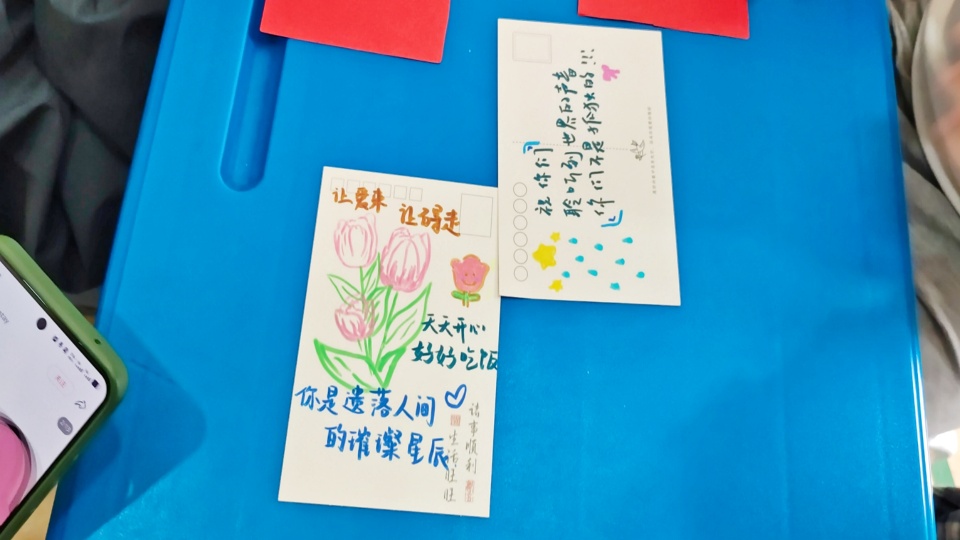 让爱来 让碍走
天天开心
好好吃饭
你是遗落人间
的璀璨星辰
诸事顺利
生活旺旺
祝你们
聆听到世界的声音
你们不是孤独的!!!